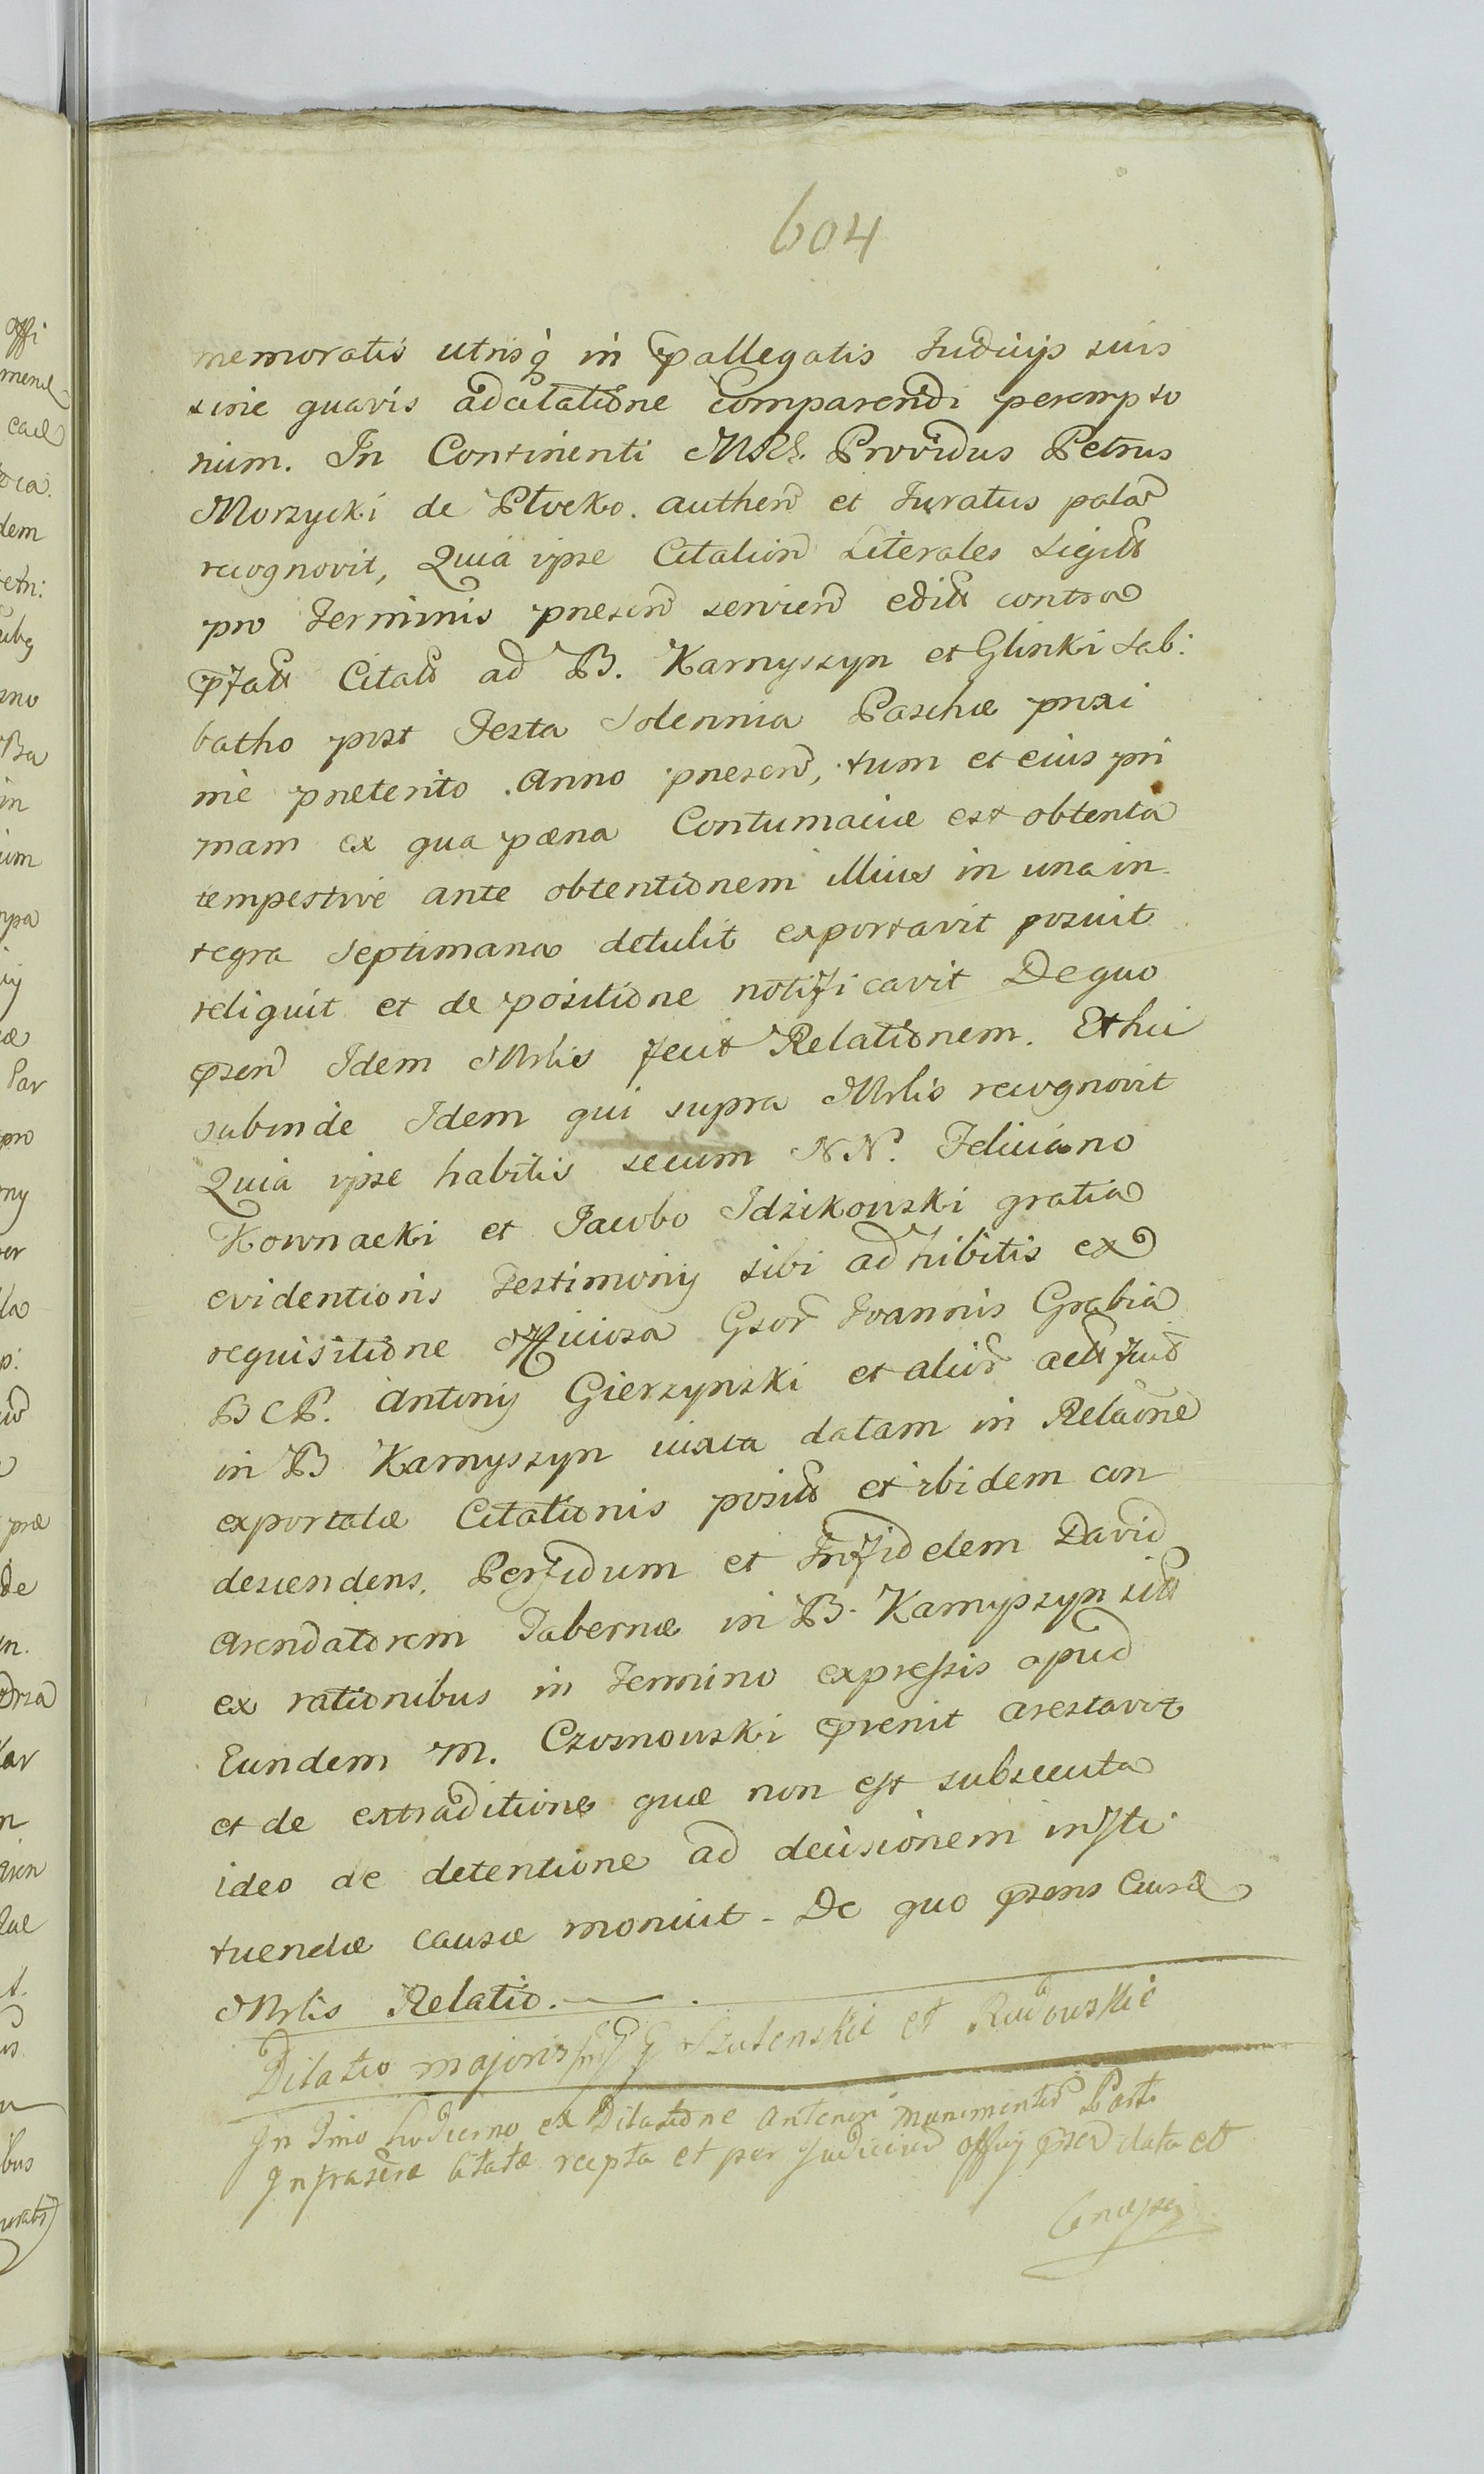 604
memoratis utrisq in pallegatis Judicijs suis
sine quavis adcitatione comparendi perempto
rium. In Continenti MRL. Providus Petrus
Morzycki de Plocko. authen et Juratus palam
recognovit, Quia ipse Citation Literales sigill
pro Terminis presen servien edit contra
pfatt Citatt ad B. Karnyszyn et Glinki Sab:
batho post Festa Solennia Paschæ proxi
me preterito Anno presen, tum et eius pri
mam ex qua pæna Contumaciæ est obtenta
tempestive ante obtentionem illius in una in
tegra Septimana detulit exportavit posuit
reliquit et de positione notificavit De quo
psen Idem Mrlis fecit Relationem. Et hic
subinde Idem qui supra Mrlis recognovit
Quia ipse habitis secum NN. Feliciano
Kownacki et Jacobo Idzikowski gratia
evidentioris Testimonij sibi adhibitis ex
requisitione officiosa Gsor Joannis Grabia
B CP. Antonij Gierzynski et alior actt fuit
in B Karnyszyn iuxta datam in Relaõne
exportatæ Citationis posit et ibidem con
descendens. Perfidum et Infidelem David
arendatorem Tabernæ in B. Karnyszyn sitt
ex rationibus in Termino expressis apud
Eundem M. Czosnowski prenit arestavit
et de extraditione quæ non est subsecuta
ideo de detentione ad decisionem insti
tuendæ causæ monuit - De quo psens Cause
Mrlis Relatio.
Dilatio majoris G Szatenskie et Radowskie
In Tmo hodierno ex Dilatione Anteriori munimentor Parti
Infrascre Citatæ recepta et per Judicium Offij psen data et